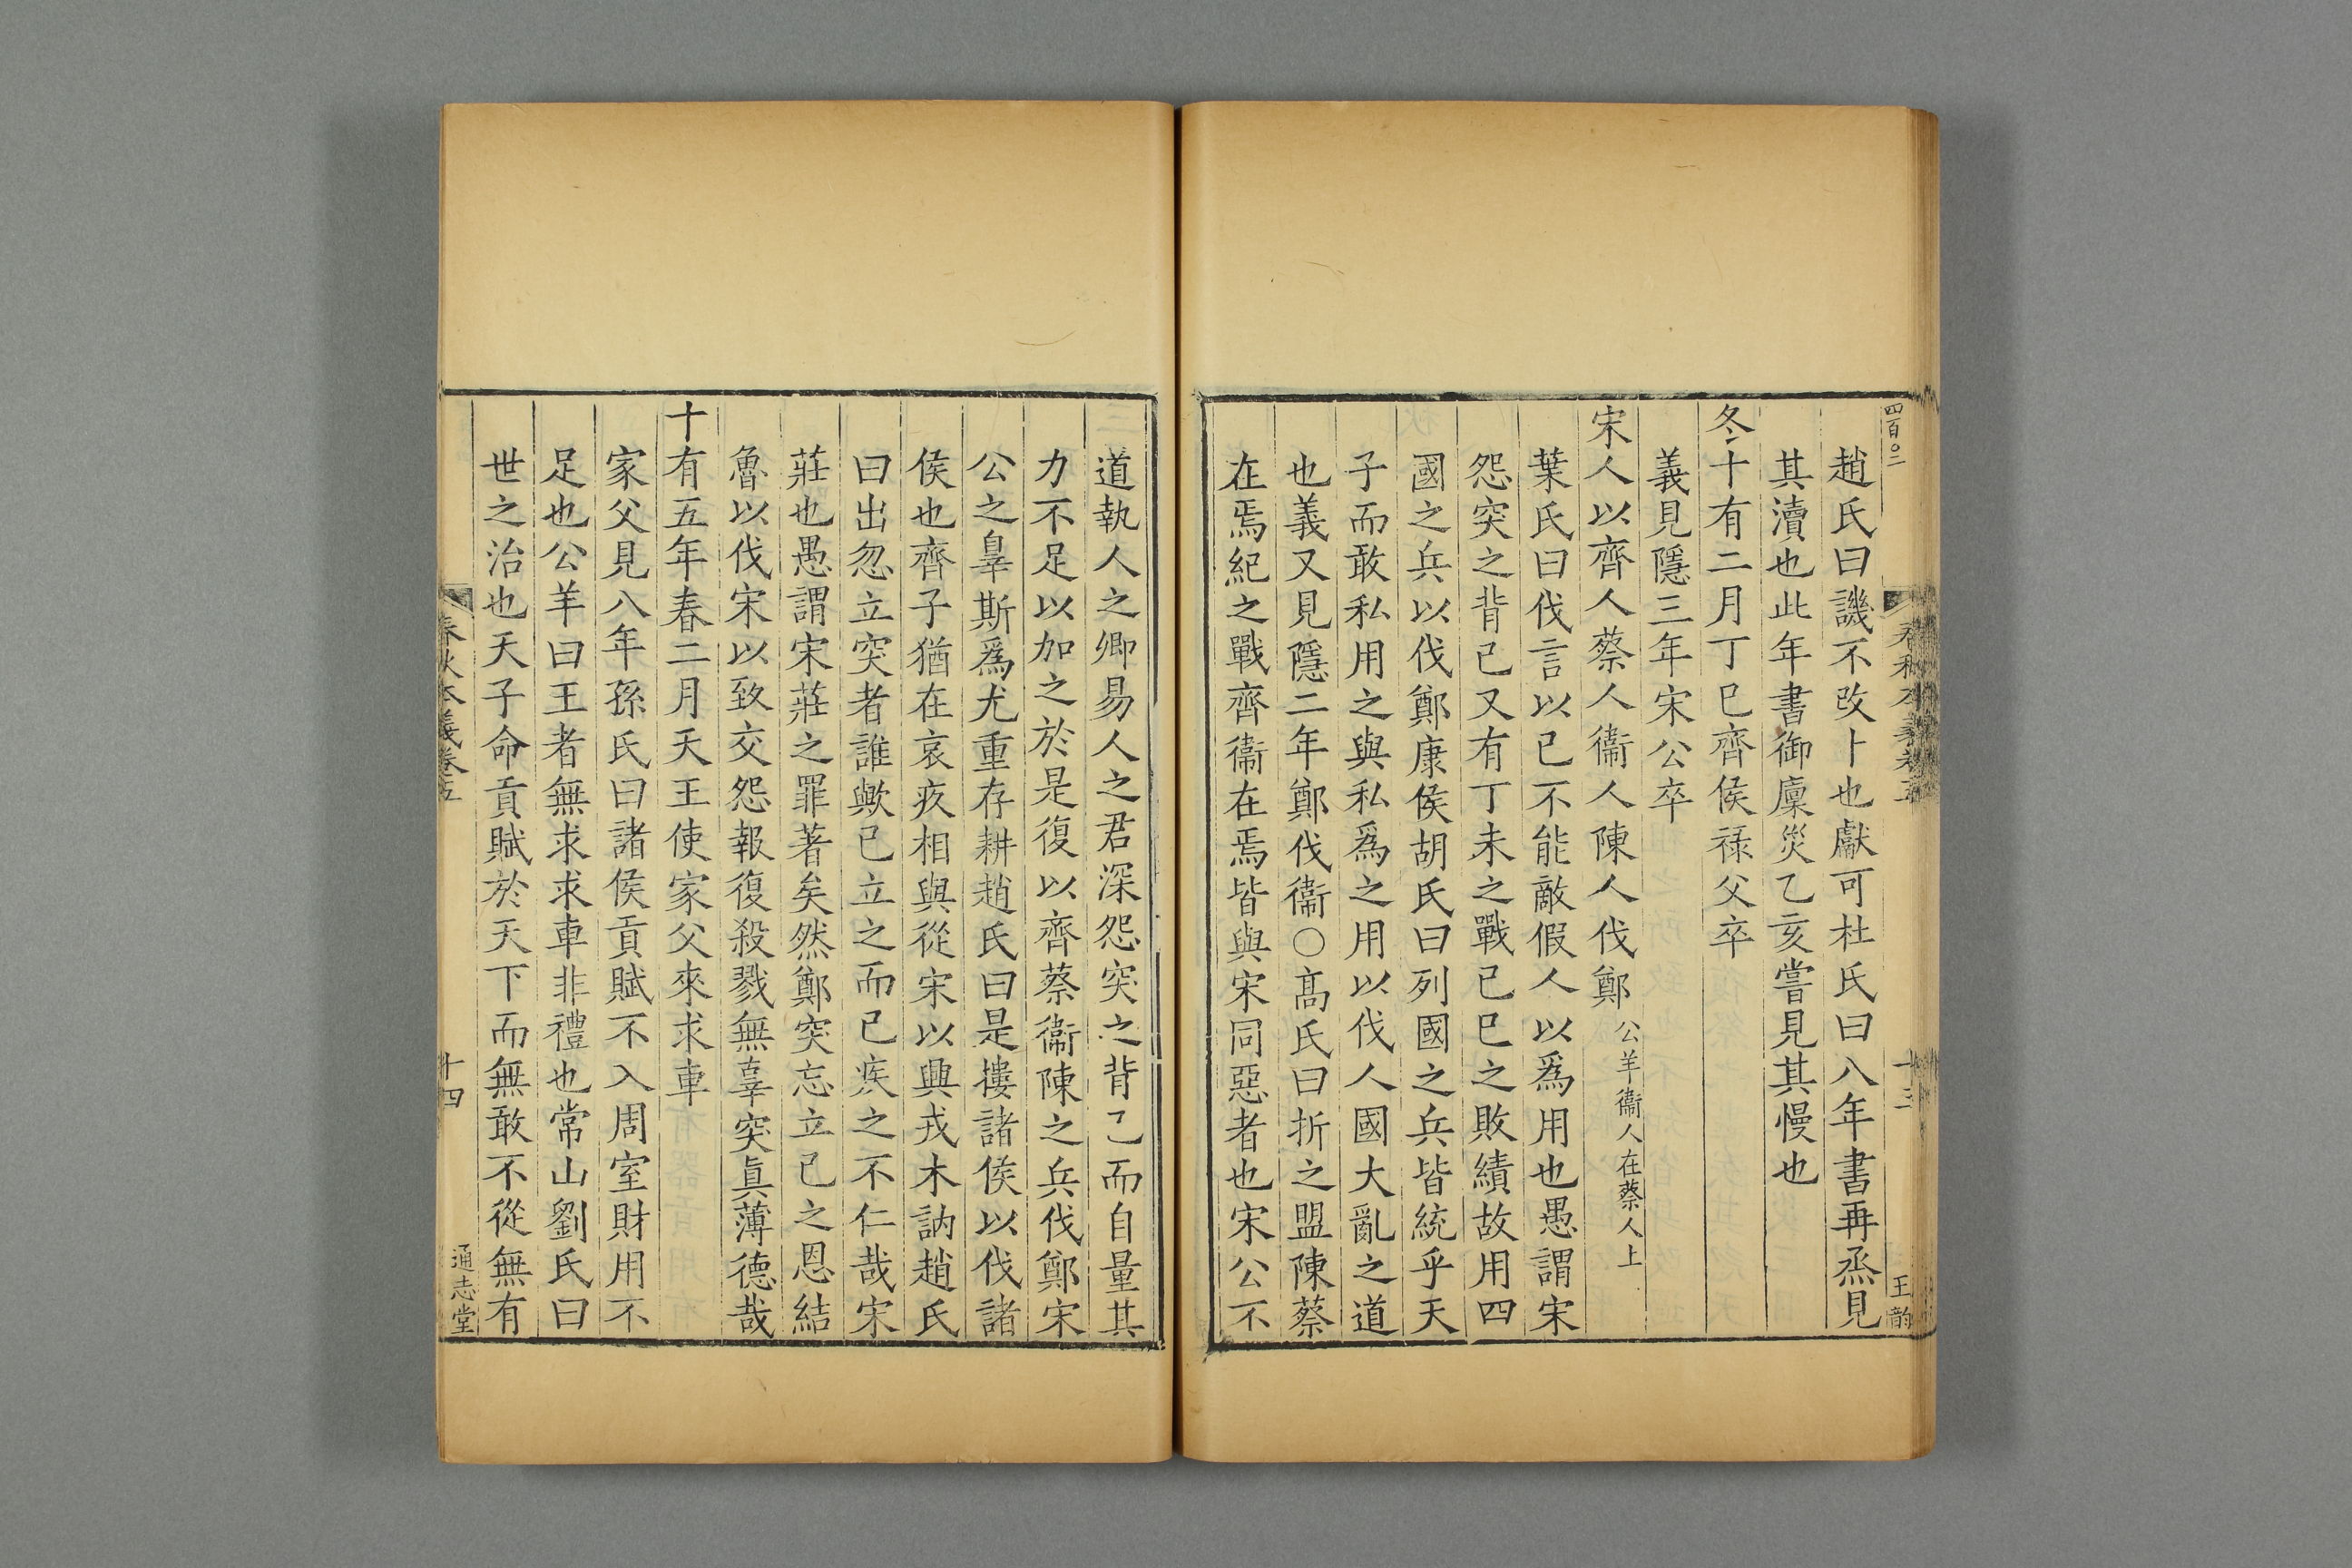 四百〇二
春秋本義卷五
十三
王韵
趙氏曰譏不改卜也獻可杜氏曰八年書再烝見
其瀆也此年書御廩災乙亥嘗見其慢也
冬十有二月丁巳齊侯祿父卒
義見隱三年宋公卒
宋人以齊人蔡人衞人陳人伐鄭公羊衞人在蔡人上
葉氏曰伐言以已不能敵假人以爲用也愚謂宋
怨突之背已又有丁未之戰已巳之敗績故用四
國之兵以伐鄭康侯胡氏曰列國之兵皆統乎天
子而敢私用之與私爲之用以伐人國大亂之道
也義又見隱二年鄭伐衞○髙氏曰折之盟陳蔡
在焉紀之戰齊衞在焉皆與宋同惡者也宋公不
道執人之卿易人之君深怨突之背己而自量其
力不足以加之於是復以齊蔡衞陳之兵伐鄭宋
公之辠斯爲尤重存耕趙氏曰是摟諸侯以伐諸
侯也齊子猶在哀疚相與從宋以興戎木訥趙氏
曰出忽立突者誰歟已立之而已疾之不仁哉宋
莊也愚謂宋莊之罪著矣然鄭突忘立已之恩結
魯以伐宋以致交怨報復殺戮無辜突眞薄德哉
十有五年春二月天王使家父來求車
家父見八年孫氏曰諸侯貢賦不入周室財用不
足也公羊曰王者無求求車非禮也常山劉氏曰
世之治也天子命貢賦於天下而無敢不從無有
春秋本義卷五
十四
通志堂